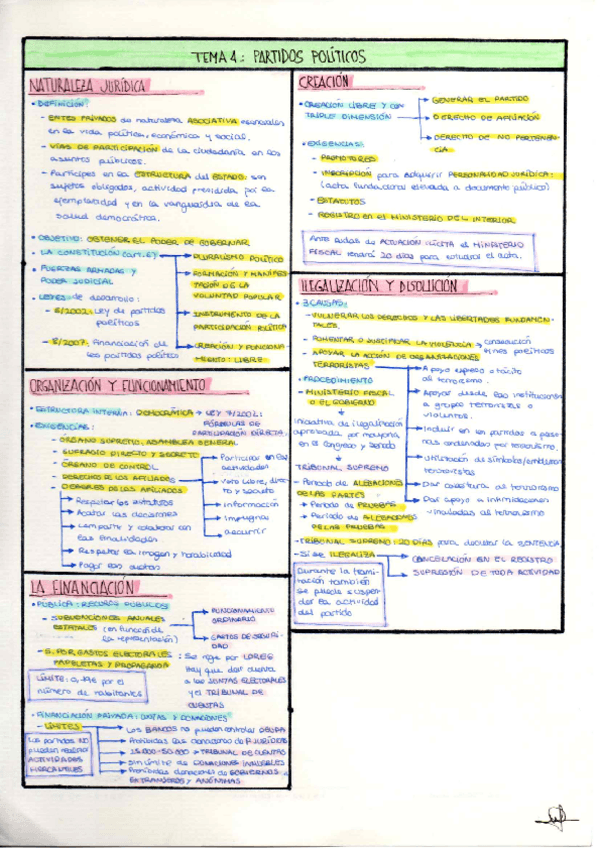 TEMA 4: PARTIDOS POLÍTICOS
NATURALEZA JURÍDICA
• DEFINICIÓN:
- ENTES PRIVADOS de naturaleza ASOCIATIVA esenciales
en la vida política, económica y social.
- VÍAS DE PARTICIPACIÓN de la ciudadanía en los
asuntos públicos.
- Partícipes en la ESTRUCTURA del ESTADO: son
sujetos obligados, actividad presidida por la
ejemplaridad y en la vanguardia de la
salud democrática.
• OBJETIVO: OBTENER EL PODER DE GOBERNAR
• LA CONSTITUCIÓN (art. 6)
→ PLURALISMO POLÍTICO
→ FORMACIÓN Y MANIFES-
TACIÓN DE LA
VOLUNTAD POPULAR
→ INSTRUMENTO DE LA
PARTICIPACIÓN POLÍTICA
→ CREACIÓN Y FUNCIONA-
MIENTO: LIBRE
• FUERZAS ARMADAS y
PODER JUDICIAL
• LEYES de desarrollo:
- 6/2002: Ley de partidos
políticos
- 8/2007: Financiación de
los partidos políticos
ORGANIZACIÓN Y FUNCIONAMIENTO
• ESTRUCTURA INTERNA: DEMOCRÁTICA → LEY 7/2002:
FÓRMULAS DE
PARTICIPACIÓN DIRECTA
• EXIGENCIAS:
- ÓRGANO SUPREMO, ASAMBLEA GENERAL
- SUFRAGIO DIRECTO Y SECRETO
- ÓRGANO DE CONTROL
- DERECHO DE LOS AFILIADOS
→ Participar en las
actividades
→ Voto libre, direc-
to y secreto
→ información
→ impugnar
→ recurrir
- DEBERES DE LOS AFILIADOS
→ Respetar los estatutos
→ Acatar las decisiones
→ Compartir y colaborar con
las finalidades
→ Respetar la imagen y honorabilidad
→ Pagar las cuotas
LA FINANCIACIÓN
• PÚBLICA: RECURSOS PÚBLICOS
- SUBVENCIONES ANUALES
ESTATALES (en función de
la representación)
→ FUNCIONAMIENTO
ORDINARIO
→ GASTOS DE SEGURI-
DAD
- S. POR GASTOS ELECTORALES: Se rige por LOREG
PAPELETAS Y PROPAGANDA
Hay que dar cuenta
a las JUNTAS ELECTORALES
y el TRIBUNAL DE
CUENTAS
LÍMITE: 0,19€ por el
número de habitantes
• FINANCIACIÓN PRIVADA: CUOTAS Y DONACIONES
- LÍMITES
→ Los BANCOS no pueden condonar DEUDA
→ Prohibidas las donaciones de P. JURÍDICAS
→ 25.000-50.000 → TRIBUNAL DE CUENTAS
→ Sin límite de DONACIONES INMUEBLES
→ Prohibidas donaciones de GOBIERNOS
EXTRANJEROS y ANÓNIMAS
Los partidos NO
pueden realizar
ACTIVIDADES
MERCANTILES
CREACIÓN
• CREACIÓN LIBRE Y CON
TRIPLE DIMENSIÓN
→ GENERAR EL PARTIDO
→ DERECHO DE AFILIACIÓN
→ DERECHO DE NO PERTENEN-
CIA
• EXIGENCIAS:
- PROMOTORES
- INSCRIPCIÓN para adquirir PERSONALIDAD JURÍDICA:
(acta fundacional elevada a documento público)
- ESTATUTOS
- REGISTRO en el MINISTERIO DEL INTERIOR
Ante dudas de ACTUACIÓN ILÍCITA el MINISTERIO
FISCAL tendrá 20 días para estudiar el acta.
ILEGALIZACIÓN Y DISOLUCIÓN
• 3 CAUSAS:
- VULNERAR LOS DERECHOS Y LAS LIBERTADES FUNDAMEN-
TALES.
- FOMENTAR O DISCIPLINAR LA VIOLENCIA → consecución
fines políticos
- APOYAR LA ACCIÓN DE ORGANIZACIONES
TERRORISTAS
→ Apoyo expreso o tácito
al terrorismo.
→ Apoyar desde las instituciones
a grupos terroristas o
violentos.
→ Incluir en un partido a perso-
nas condenadas por terrorismo.
→ Utilización de símbolos/emblemas
terroristas
→ Dar cobertura al terrorismo
→ Dar apoyo a intimidaciones
vinculadas al terrorismo
• PROCEDIMIENTO
- MINISTERIO FISCAL
O EL GOBIERNO
Iniciativa de ilegalización
aprobada por mayoría
en el Congreso y Senado
TRIBUNAL SUPREMO
- Periodo de ALEGACIONES
DE LAS PARTES
→ Periodo de PRUEBAS
→ Periodo de ALEGACIONES
DE LAS PRUEBAS
- TRIBUNAL SUPREMO: 20 DÍAS para dictar la SENTENCIA
- SI SE ILEGALIZA
→ CANCELACIÓN EN EL REGISTRO
→ SUPRESIÓN DE TODA ACTIVIDAD
Durante la trami-
tación también
se puede suspen-
der la actividad
del partido